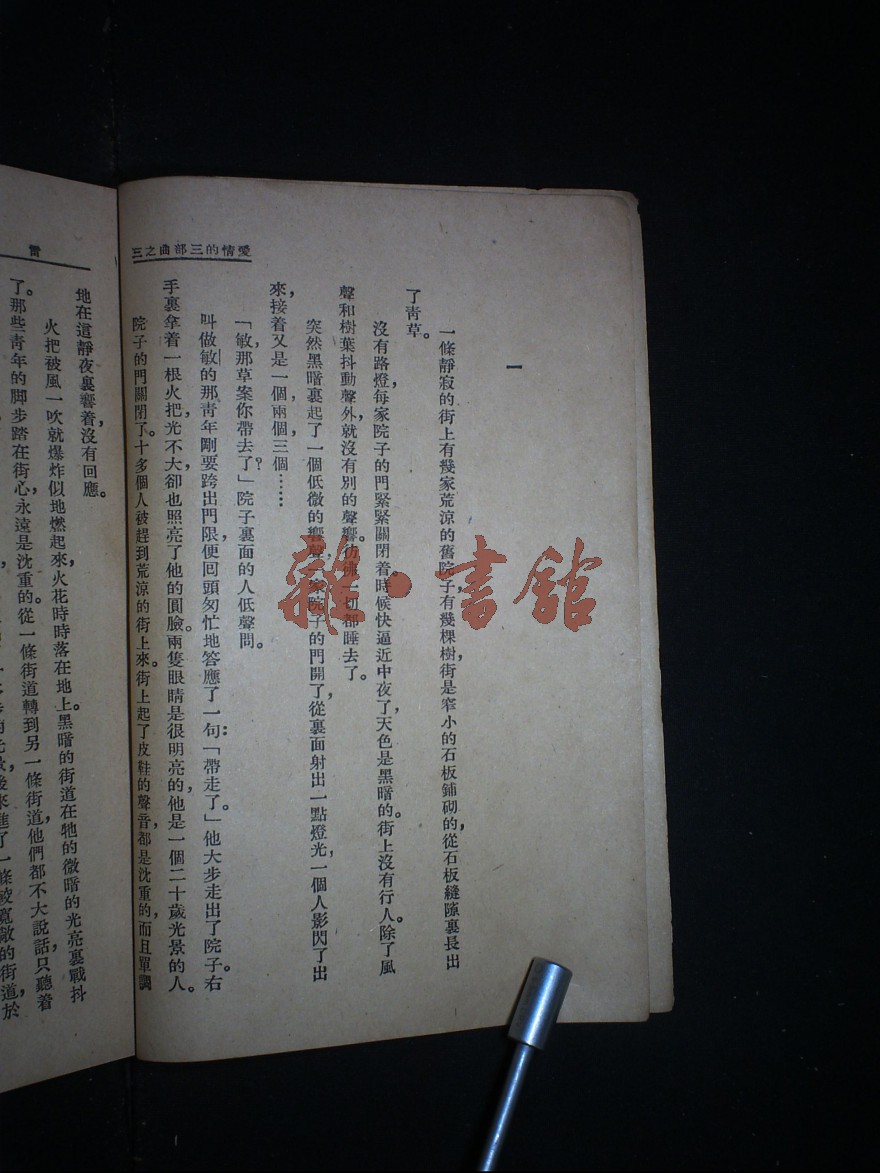 愛情的三部曲之三
一
一條靜寂的街上有幾家荒涼的舊院子，有幾棵樹，街是窄小的石板鋪砌的，從石板縫隙裏長出
了青草。
沒有路燈，每家院子的門緊緊關閉着。時候快逼近中夜了，天色是黑暗的。街上沒有行人。除了風
聲和樹葉抖動聲外，就沒有別的聲響。彷彿一切都睡去了。
突然黑暗裏起了一個低微的響聲，一家院子的門開了，從裏面射出一點燈光，一個人影閃了出
來，接着又是一個，兩個，三個……
「敏，那草案你帶去了？」院子裏面的人低聲問。
叫做敏的那青年剛要跨出門限，便回頭匆忙地答應了一句：「帶走了。」他大步走出了院子。右
手裏拿着一根火把，光不大，卻也照亮了他的圓臉。兩隻眼睛是很明亮的，他是一個二十歲光景的人。
院子的門關閉了。十多個人被趕到荒涼的街上來。街上起了皮鞋的聲音，都是沈重的，而且單調
雷
地在這靜夜裏響着，沒有回應。
火把被風一吹就爆炸似地燃起來，火花時時落在地上。黑暗的街道在牠的微暗的光亮裏戰抖
了。那些青年的脚步踏在街心，永遠是沈重的。從一條街道轉到另一條街道，他們都不大說話，只聽着
後來進了一條較寬敞的街道，於
雜·書館